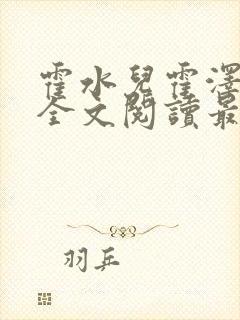 霍水兒霍澤
全文閱讀最
羽兵